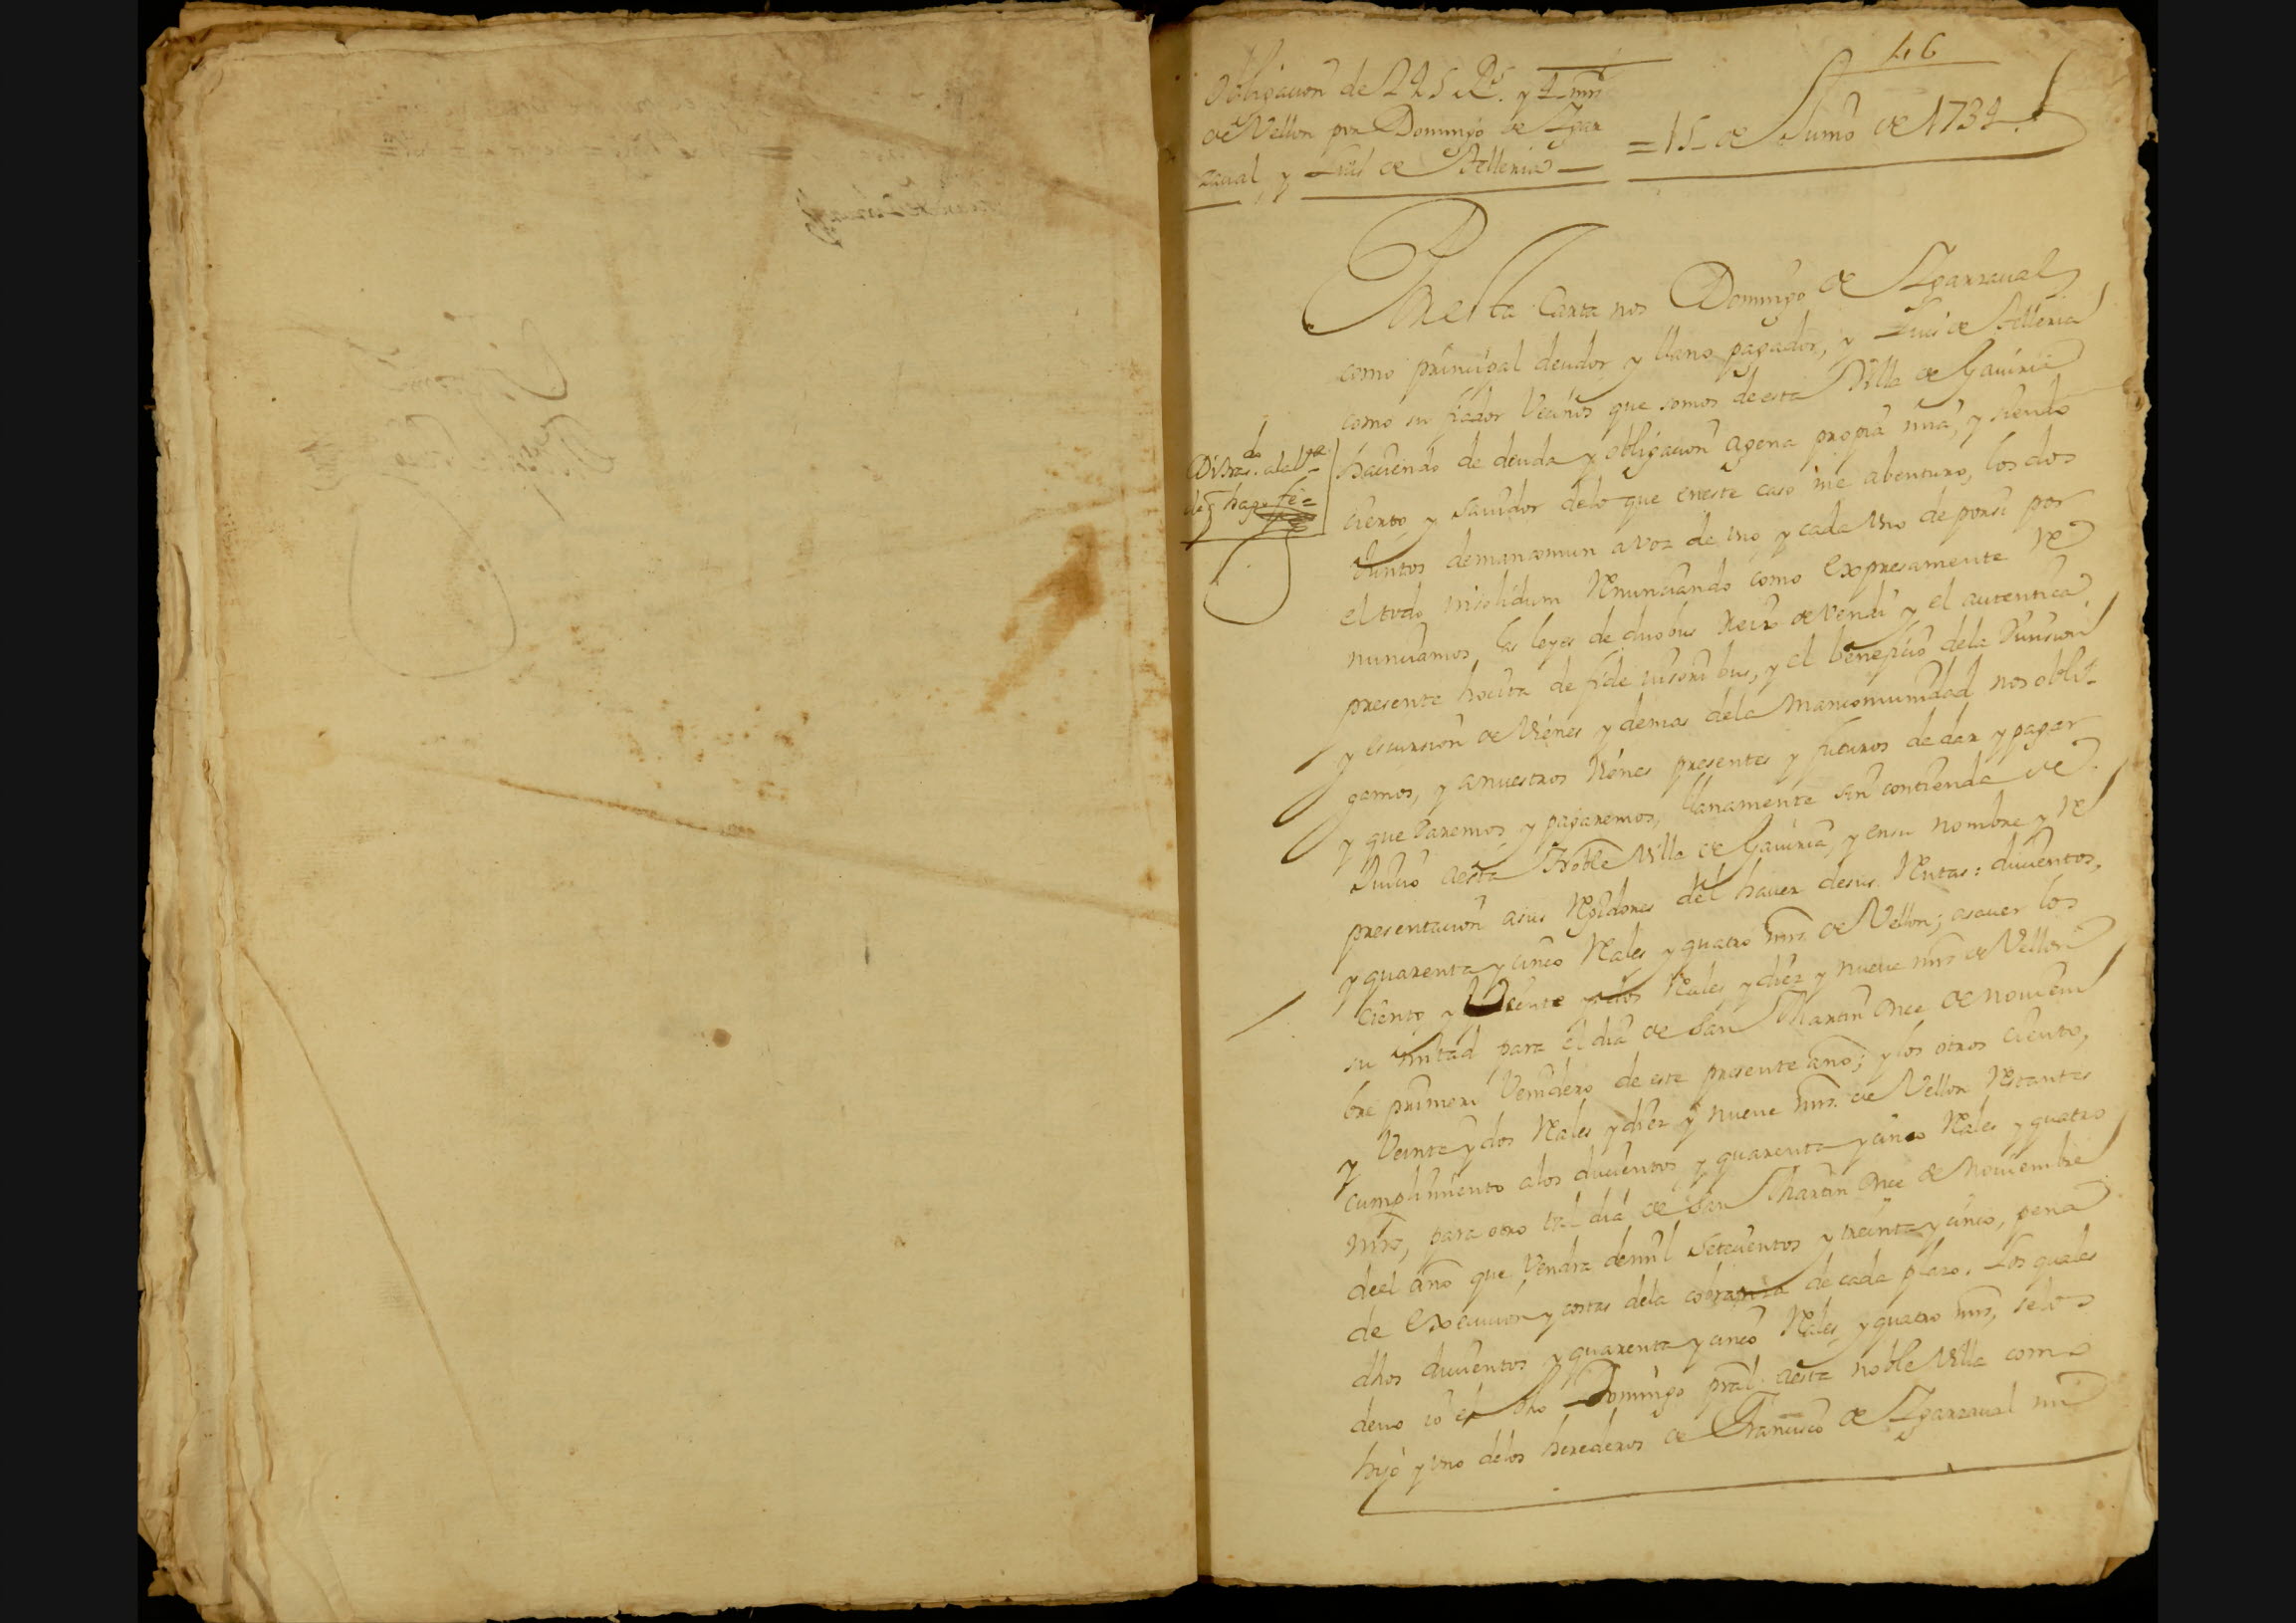 46
Obligacion de 245 Rs. y 4 mrs
de Vellon por Domingo de Ygar
zaual, y Luis de Telleria
= 15 de Junio de 1734
Por esta Carta nos Domingo de Ygarzaual
como principal deudor y llano pagador, y Luis de Telleria
como su fiador Vecinos que somos de esta Villa de Gauiria
haciendo de deuda y obligacion agena propia nra, y siendo
cierto, y sauidor delo que eneste caso me abenturo, los dos
Juntos demancomun a voz de uno, y cada uno de porsi por
el todo insolidum Renunciando como Expresamente Re
nunciamos las leyes de duobus Reix de vendi y el autentica
presente hocita de fide iusoribus, y el beneficio dela Diuision
y escursion de Vienes y demas dela Mancomunidad nos obli-
gamos, y anuestros Vienes presentes y futuros de dar y pagar
y que Daremos y pagaremos, llanamente sin contienda de
Juicio aesta Noble Villa de Gauiria, y ensu nombre y Re
presentacion asus Rexidores del hauer desus Rentas: ducientos,
y quarenta y cinco Rales y quatro mrs. de Vellon; asauer los
ciento y Veinte y dos Rales y diez y nueve mrs de Vellon
su mitad para el dia de San Martin Once de Nouiem
bre primero Venidero de este presente año; y los otros ciento,
y Veinte y dos Rales y diez y nueue mrs. de Vellon Restantes
cumplimiento alos ducientos y quarenta y cinco Rales y quatro
mrs, para otro tal dia de San Martin Once de Nouiembre
deel año que Vendra demil setecientos y treinta y cinco, pena
de Execucion y costas dela cobranza de cada plazo. Los quales
dhos ducientos y quarenta y cinco Rales y quatro mrs, selos
deuo io el dho Domingo pral. aesta noble Villa como
hijo y uno delos herederos de Francisco de Ygarzaual mi
hago fe =